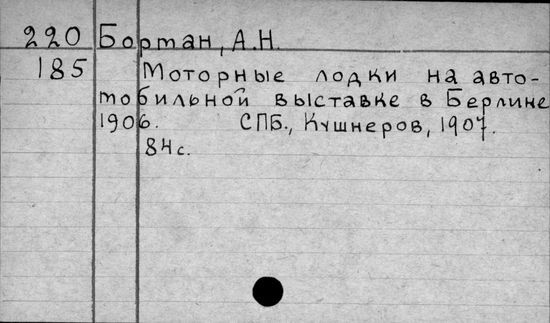 220 Бортан, А.Н.
185 Моторные лодки на авто-
мобильной выставке в Берлине
1906. СПБ., Кушнеров, 1907.
84с.